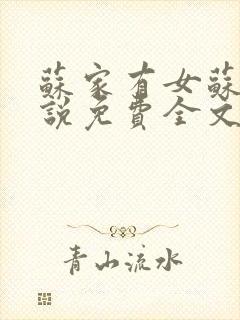 蘇家有女蘇
說免費全文
青山流水